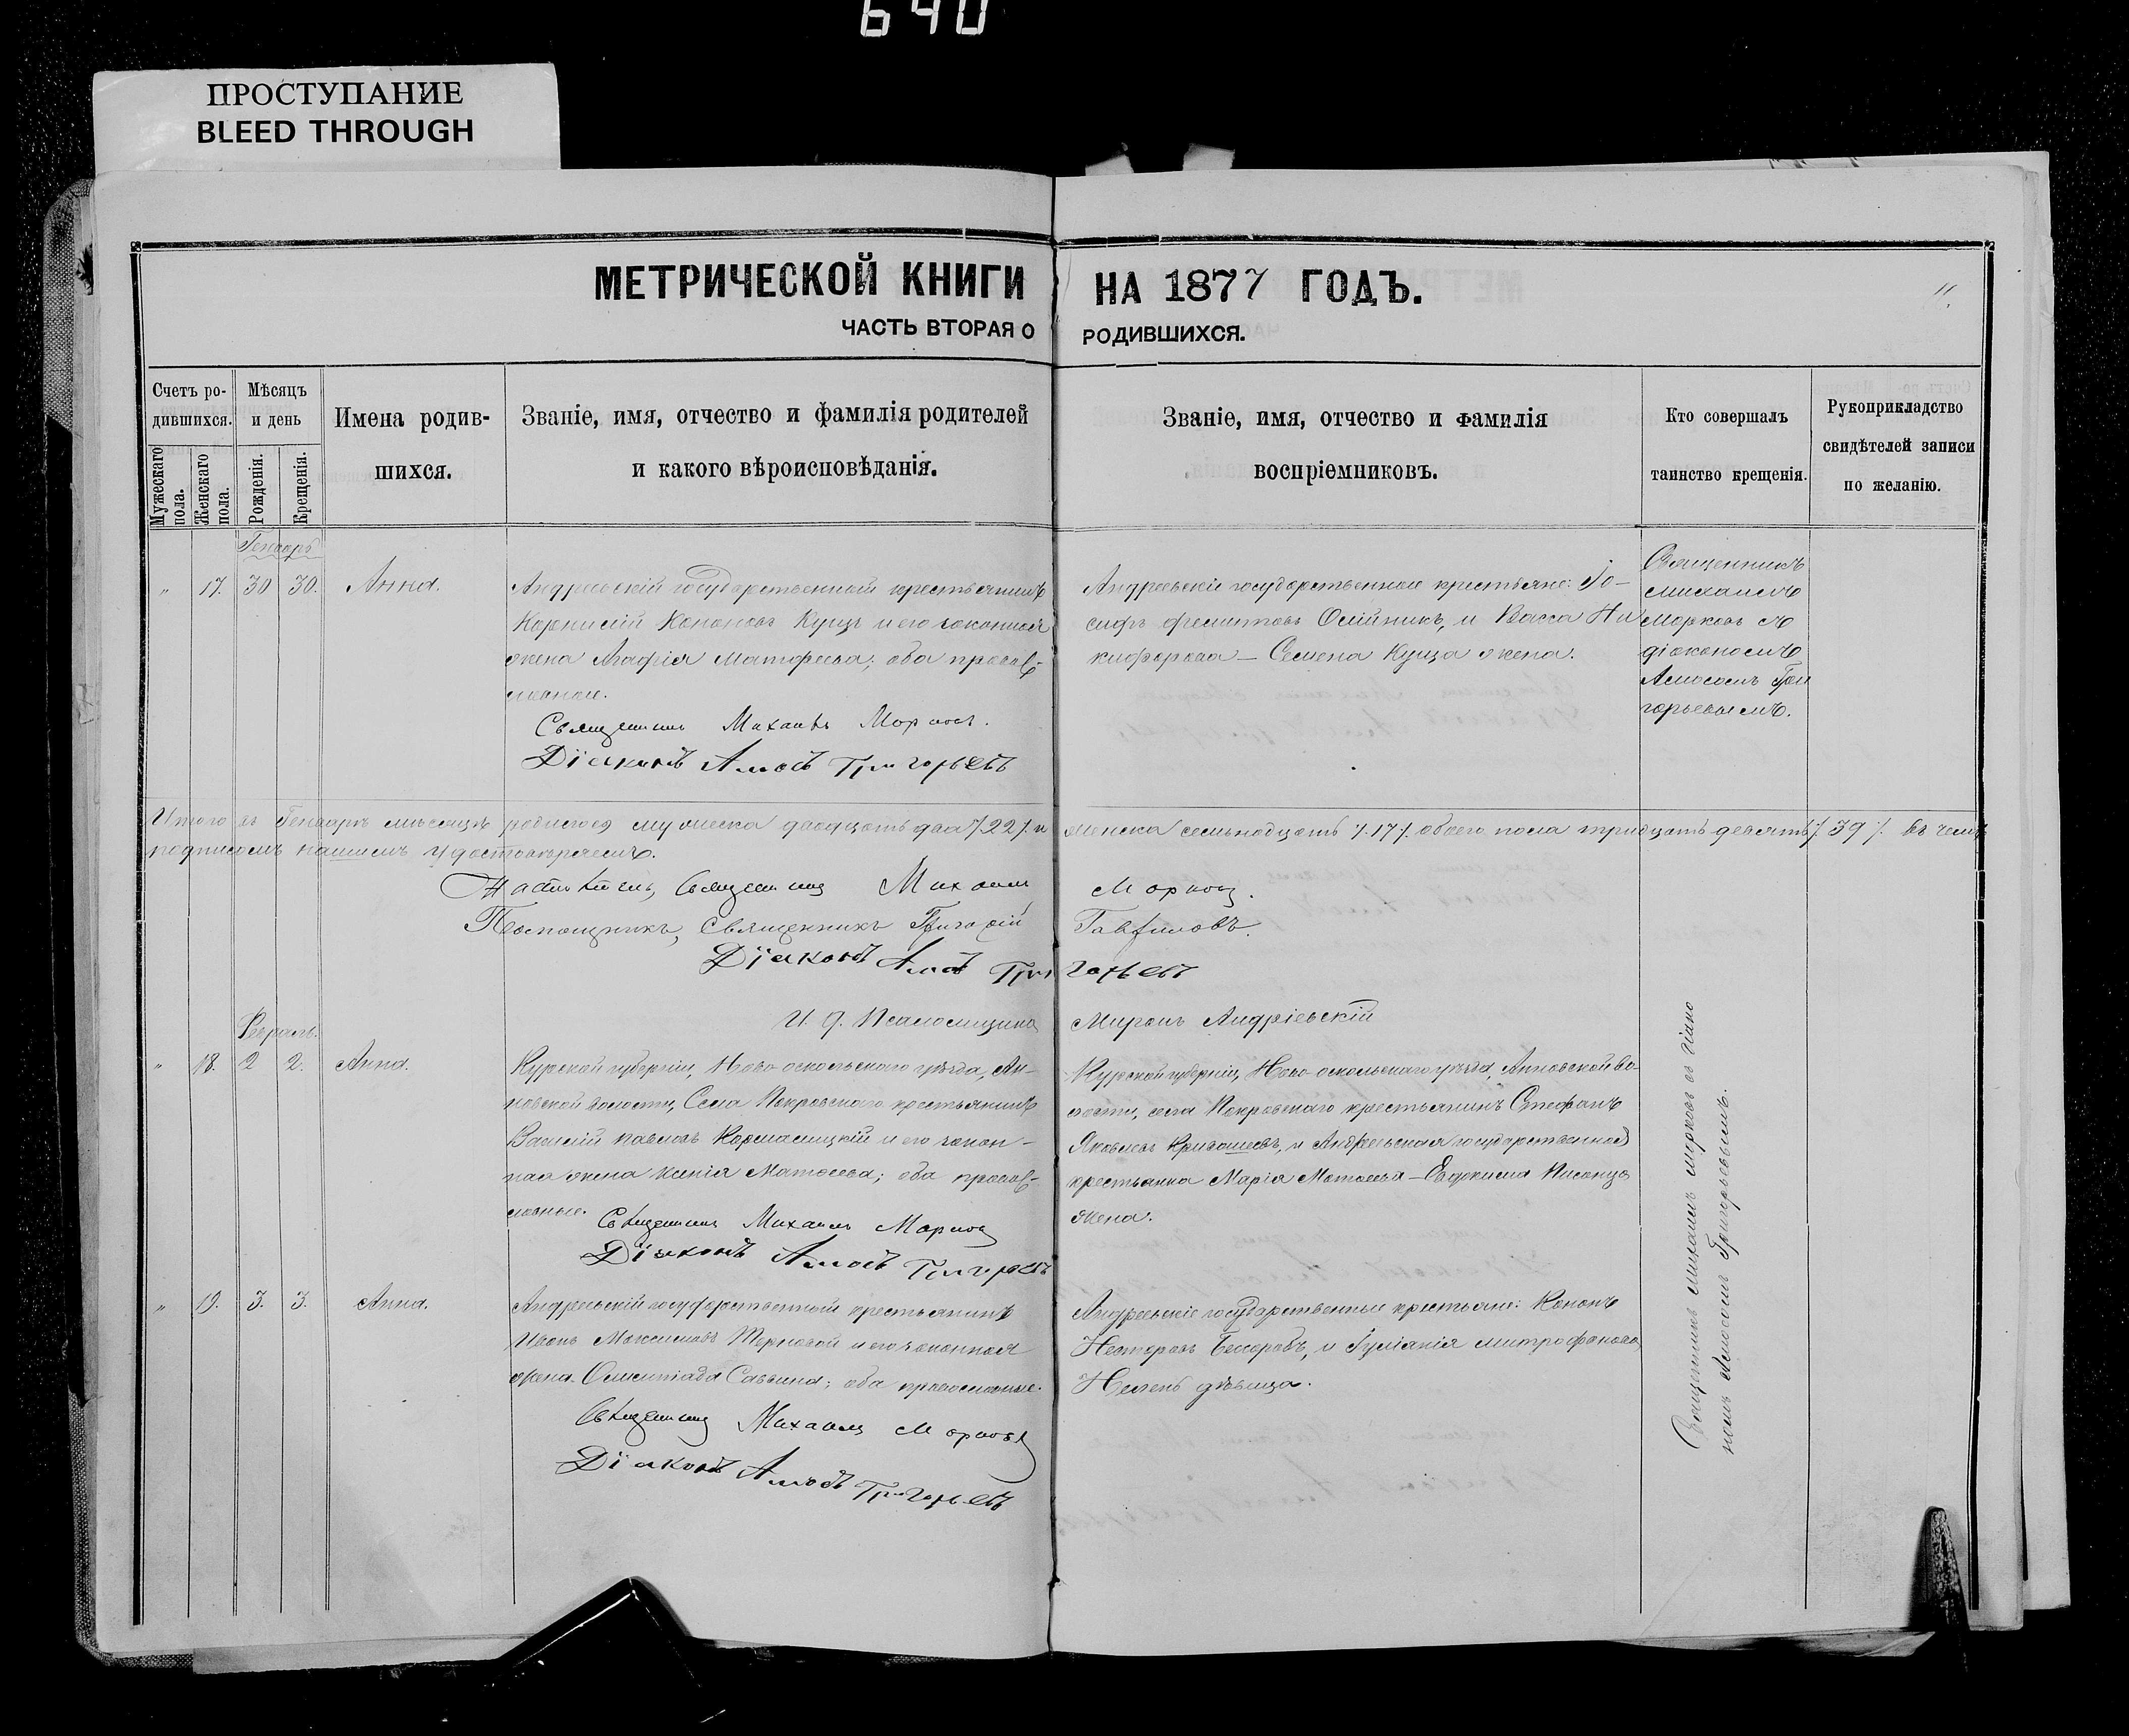 640
ПРОСТУПАНИЕ
BLEED THROUGH
МЕТРИЧЕСКОЙ КНИГИ НА 1877 ГОДЪ.
11.
ЧАСТЬ ВТОРАЯ О РОДИВШИХСЯ.
Счетъ ро-
дившихся.
Мужескаго пола.
Женскаго пола.
Мѣсяцъ
и день
Рожденія.
Крещенія.
Имена родив-
шихся.
Званіе, имя, отчество и фамилія родителей
и какого вѣроисповѣданія.
Званіе, имя, отчество и фамилія
воспріемниковъ.
Кто совершалъ
таинство крещенія.
Рукоприкладство
свидѣтелей записи
по желанію.
Генварь
" 17. 30 30. Анна.
Андреевскій государственный крестьянинъ
Корнилій Кононовъ Куцъ и его законная
жена Агафія Матфеева; оба правос-
лавные.
Священникъ Михаилъ Марковъ.
Діаконъ Амосъ Григорьевъ
Андреевскіе государственные крестьяне: Іо-
сифъ Олійникъ, и Васса Ни
кифорова – Семена Куца жена.
Священникъ
Михаилъ
Марковъ съ
діакономъ
Амосомъ Гри
горьевымъ.
Итого въ Генварѣ мѣсяцѣ родилося мужеска двадцать два /.22/. и женска семьнадцать /.17/. обоего пола тридцать девять /.39/. въ чемъ
подписомъ нашимъ удостовѣряемъ.
Настоятель, Священникъ Михаилъ Марковъ.
Помощникъ, Священникъ Григорій Гавриловъ.
Діаконъ Амосъ Григорьевъ
И. д. Псаломщика Миронъ Андріевскій
Февраль.
" 18. 2 2. Анна.
Курской губерніи, Ново-оскольскаго уѣзда, Ан-
новской волости, Села Покровскаго крестьянинъ
Василій Павловъ и его закон-
ная жена Ксенія Матвеева; оба правос-
лавные.
Священникъ Михаилъ Марковъ
Діаконъ Амосъ Григорьевъ
Курской губерніи, Ново-оскольскаго уѣзда, Анновской во-
лости, села Покровскаго крестьянинъ Стефанъ
Яковлевъ Кривошеевъ, и Андреевская государственная
крестьянка Марія Матвеева – Евдокима Писанца
жена.
" 19. 3. 3. Анна.
Андреевскій государственный крестьянинъ
Иванъ Максимовъ Терновой и его законная
жена Олимпіада Саввина; оба православные.
Священникъ Михаилъ Марковъ
Діаконъ Амосъ Григорьевъ
Андреевскіе государственные крестьяне: Кононъ
Несторовъ и Іуліанія Митрофанова
дѣвица.
Священникъ Михаилъ Марковъ съ діако
номъ Амосомъ Григорьевымъ.